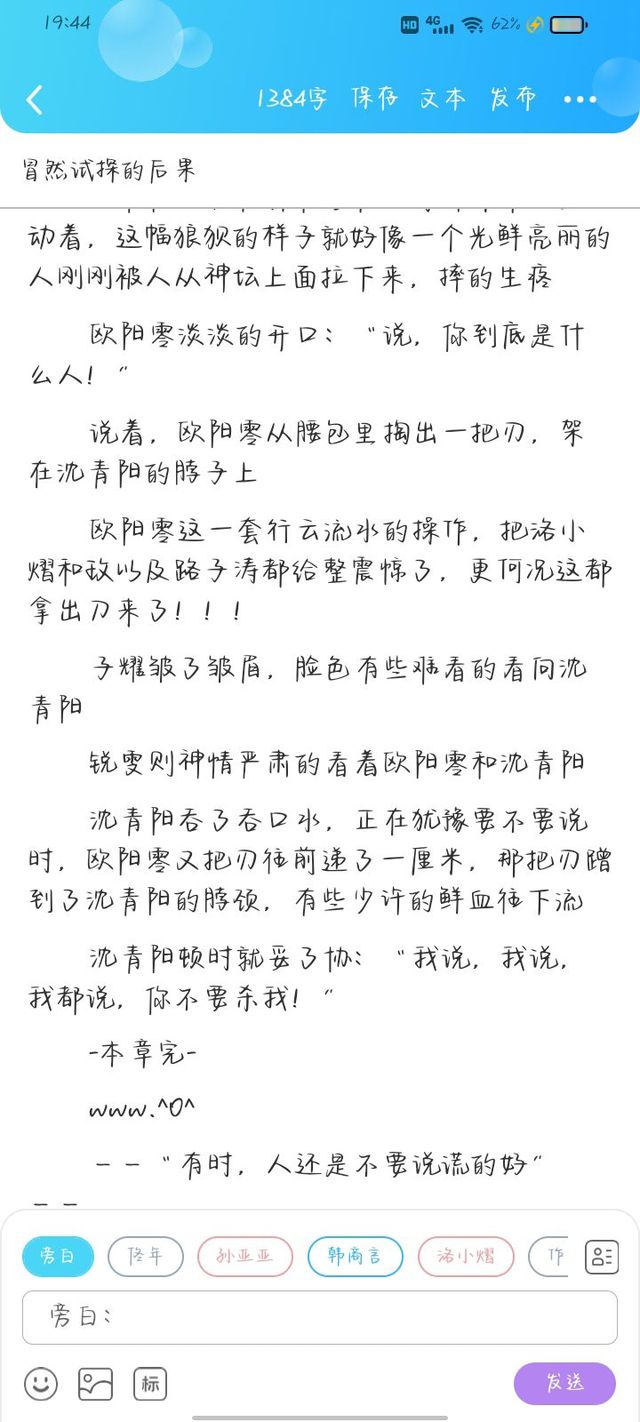 19:44
HD 4G 62%
1384字 保存 文本 发布
冒然试探的后果
动着，这幅狼狈的样子就好像一个光鲜亮丽的
人刚刚被人从神坛上面拉下来，摔的生疼
欧阳零淡淡的开口：“说，你到底是什
么人！”
说着，欧阳零从腰包里掏出一把刃，架
在沈青阳的脖子上
欧阳零这一套行云流水的操作，把洛小
熠和敌以及路子涛都给整震惊了，更何况这都
拿出刀来了！！！
子耀皱了皱眉，脸色有些难看的看向沈
青阳
锐雯则神情严肃的看着欧阳零和沈青阳
沈青阳吞了吞口水，正在犹豫要不要说
时，欧阳零又把刃往前递了一厘米，那把刃蹭
到了沈青阳的脖颈，有些少许的鲜血往下流
沈青阳顿时就妥了协：“我说，我说，
我都说，你不要杀我！”
-本章完-
www.^O^
－－“有时，人还是不要说谎的好”
－－
旁白 佟年 孙亚亚 韩商言 洛小熠 作
旁白：
标 发送